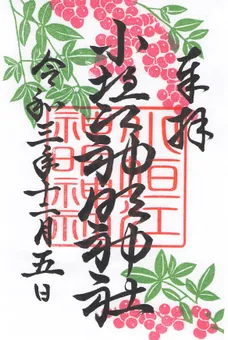 奉拝
小垣江神明神社
令和三年十一月五日
小垣江